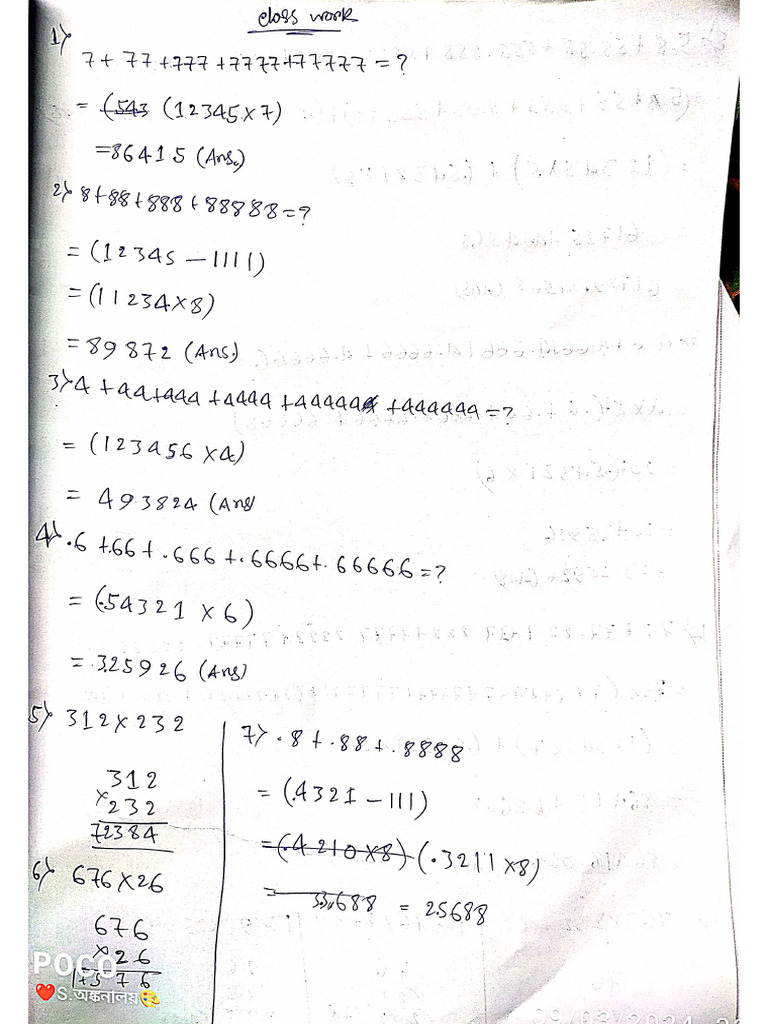 class work
1) 7 + 77 + 777 + 7777 + 77777 = ?
= (543 (12345 x 7)
= 86415 (Ans.)
2) 8 + 88 + 888 + 88888 = ?
= (12345 - 1111)
= (11234 x 8)
= 89872 (Ans.)
3) 4 + 44 + 444 + 4444 + 44444 + 444444 = ?
= (123456 x 4)
= 493824 (Ans
4) .6 + .66 + .666 + .6666 + .66666 = ?
= (.54321 x 6)
= 3.25926 (Ans)
5) 312 x 232
312
x 232
72384
6) 676 x 26
676
x 26
17576
7) .8 + .88 + .8888
= (.4321 - 111)
= (.4210 x 8) (.3211 x 8)
= 33.688 = 2.5688
POCO
❤️S.অঙ্কনালয়🎨